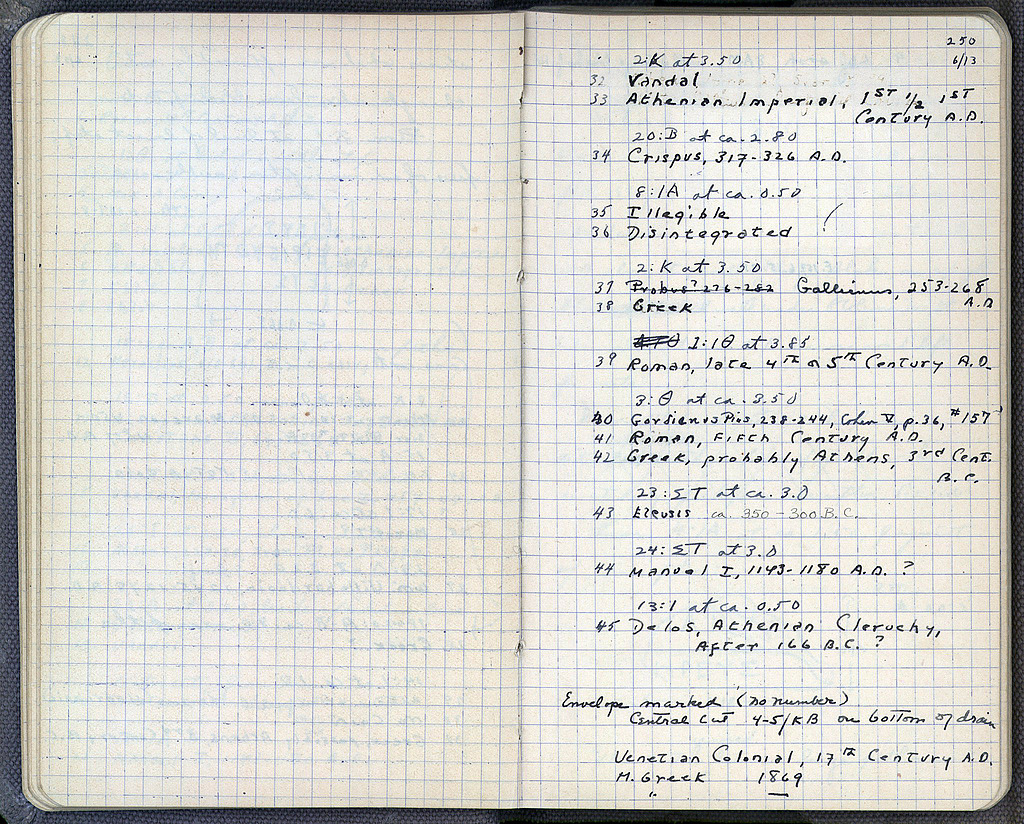 250
6/13
2:K at 3.50
32 Vandal
33 Athenian Imperial, 1ST 1/2 1ST
Century A.D.
20:B at ca. 2.80
34 Crispus, 317-326 A.D.
8:1A at ca. 0.50
35 Illegible
36 Disintegrated
2:K at 3.50
37 Probus? 276-282 Gallienus, 253-268
A.D
38 Greek
1:1Θ at 3.85
39 Roman, late 4TH or 5TH Century A.D.
3:Θ at ca. 3.50
40 Gordianus Pius, 238-244, Cohen V, p.36, #157
41 Roman, Fifth Century A.D.
42 Greek, probably Athens, 3rd Cent.
B.C.
23:ΣT at ca. 3.0
43 Eleusis ca. 350-300 B.C.
24:ΣT at 3.0
44 Manuel I, 1143-1180 A.D. ?
13:1 at ca. 0.50
45 Delos, Athenian Cleruchy,
After 166 B.C. ?
Envelope marked (no number)
Central Cut 4-5/KB on bottom of drain
Venetian Colonial, 17th Century A.D.
M. Greek 1869
"